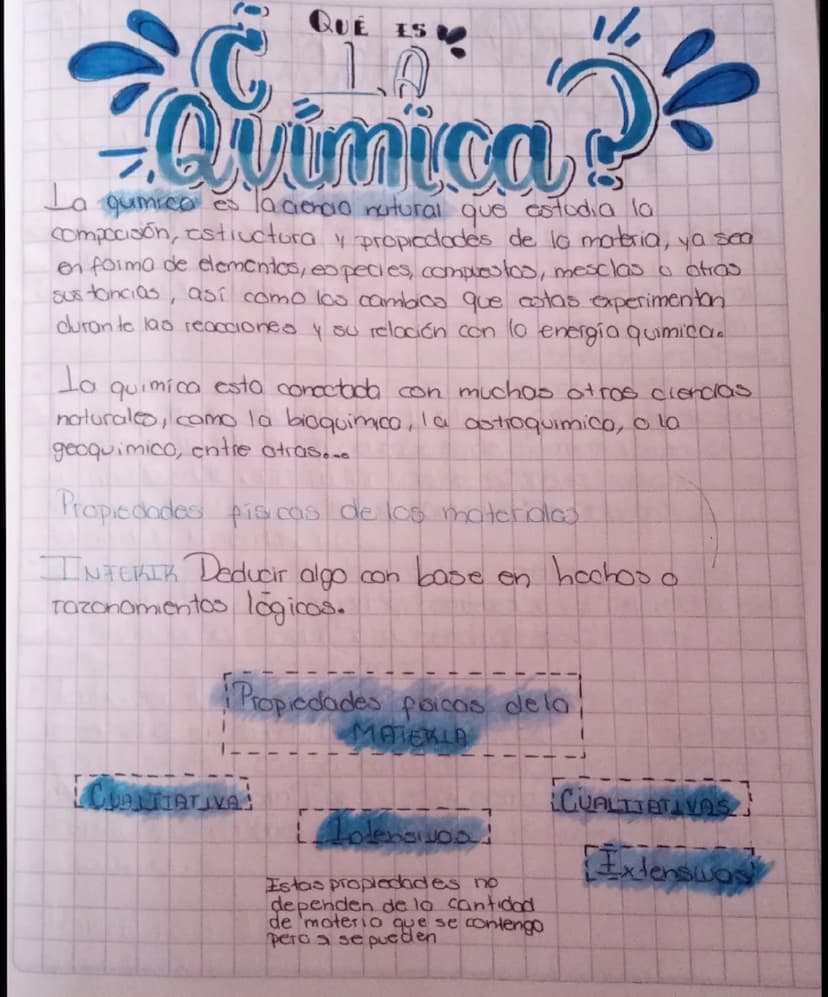 ¿QUÉ ES
LA
QUÍMICA?
La quimica es la ciencia natural que estudia la
composición, estructura y propiedades de la materia, ya sea
en forma de elementos, especies, compuestos, mesclas u otras
sustancias, así como los cambios que estas experimentan
durante las reacciones y su relación con la energía quimica.
La quimica esta conectada con muchas otras ciencias
naturales, como la bioquimica, la astroquimica, o la
geoquimica, entre otras....
Propiedades fisicas de los materiales
INFERIR Deducir algo con base en hechos o
razonamientos lógicos.
Propiedades fisicas de la
MATERIA
CUALITATIVA
CUALITATIVAS
Intensivas
Extensivas
Estas propiedades no
dependen de la cantidad
de materia que se contenga
pero si se pueden